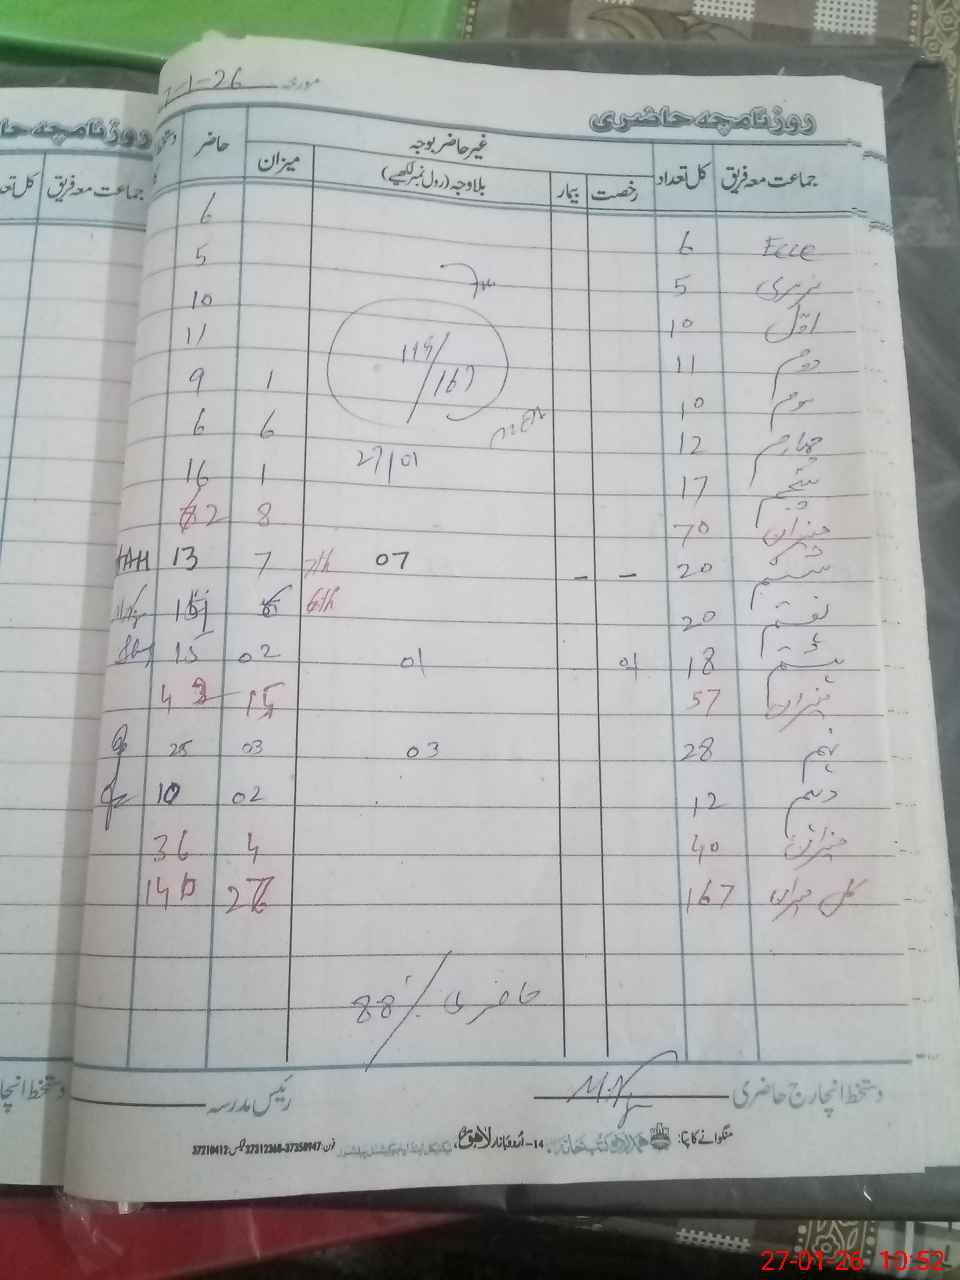 مورخہ 27-1-26
روزنامچہ حاضری
جماعت معہ فریق کل تعداد غیر حاضر بوجہ حاضر
رخصت بیمار بلاوجہ (رول نمبر لکھیے) میزان
Ecce 6 6
نرسری 5 5
اول 10 10
دوم 11 11
سوم 10 1 9
چہارم 12 6 6
پنجم 17 1 16
میزان 70 8 62
ششم 20 - - 07 7th 7 13
ہفتم 20 6th
ہشتم 18 01 01 02 15
میزان 57 15 43
نہم 28 03 03 25
دہم 12 02 10
میزان 40 4 36
کل میزان 167
167
27/01
حاضری % 88
دستخط انچارج حاضری
رئیس مدرسہ
منگوانے کا پتہ:
14- اُردو بازار لاہور
فون: 37358947-37312368 فیکس: 37210412
روزنامچہ حا
جماعت معہ فریق
27-01-26 10:52